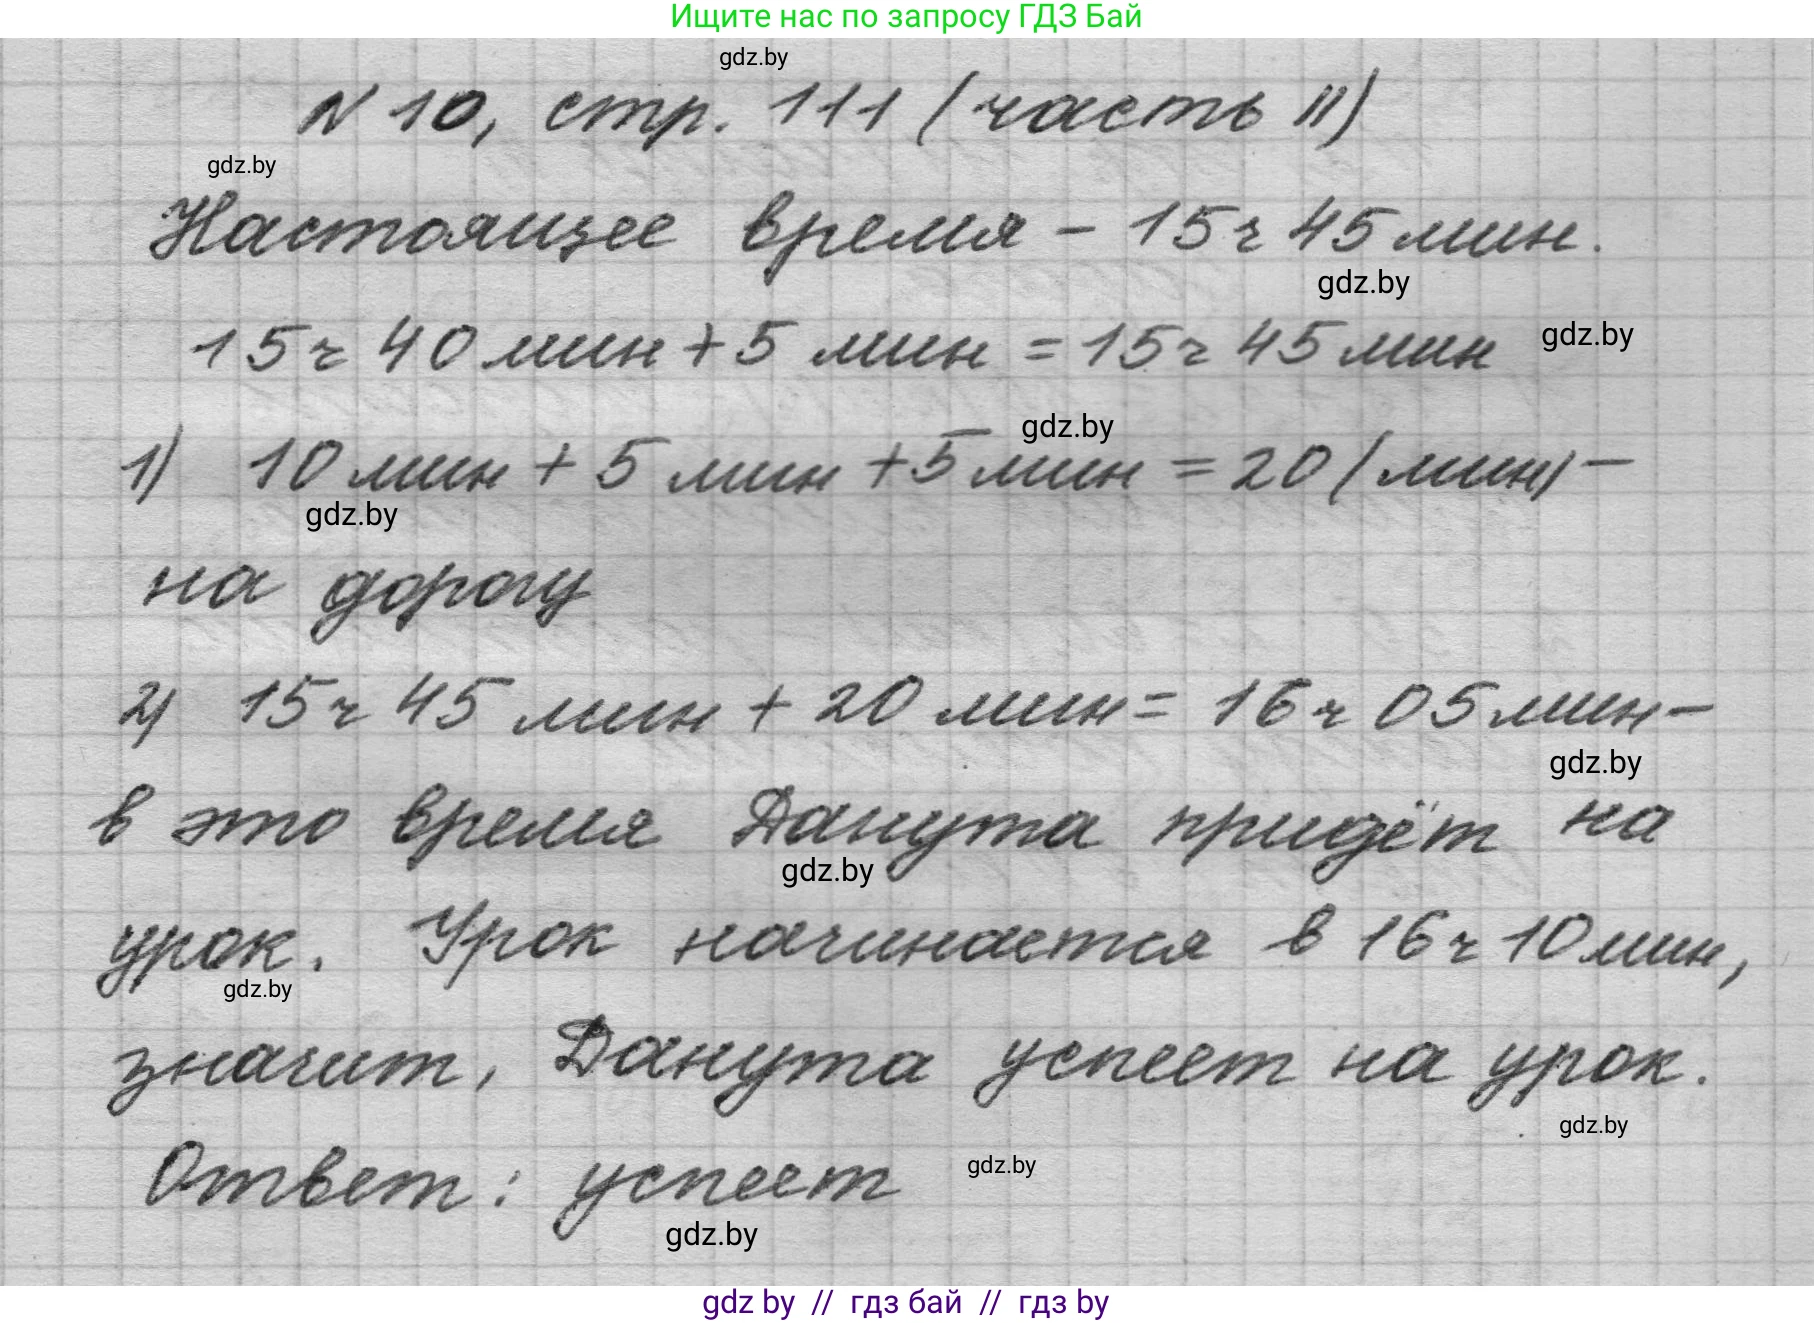 Ищите нас по запросу ГДЗ Бай
gdz.by
N 10, стр. 111 (часть II)
gdz.by
Настоящее время - 15 ч 45 мин.
gdz.by
15 ч 40 мин + 5 мин = 15 ч 45 мин gdz.by
gdz.by
1) 10 мин + 5 мин + 5 мин = 20 (мин) -
gdz.by
на дорогу
2) 15 ч 45 мин + 20 мин = 16 ч 05 мин -
gdz.by
в это время Данута придёт на
gdz.by
урок. Урок начинается в 16 ч 10 мин,
gdz.by
значит, Данута успеет на урок.
gdz.by
Ответ: успеет gdz.by
gdz.by
gdz by // гдз бай // гдз by